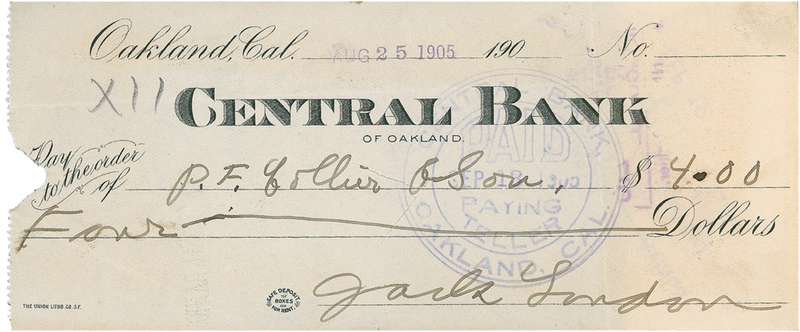 Oakland, Cal. AUG 25 1905 190 No.
XII
CENTRAL BANK
OF OAKLAND.
Pay to the order of P. F. Collier & Son, $ 4.00
Four Dollars
Jack London
CENTRAL BANK,
PAID
SEP 18
PAYING
TELLER
OAKLAND, CAL.
SAFE DEPOSIT
BOXES
FOR RENT.
THE UNION LITHO. CO. S.F.